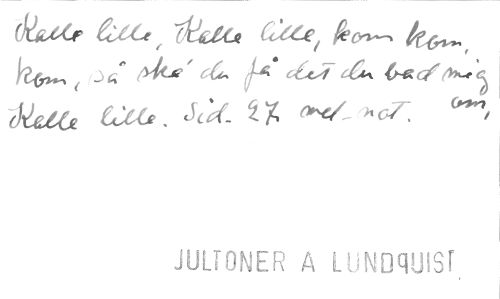 Kalle lille, Kalle lille, kom kom,
kom, så ska' du få det du bad mig
om,
Kalle lille. Sid. 27. mel-not.
JULTONER A LUNDQUIST